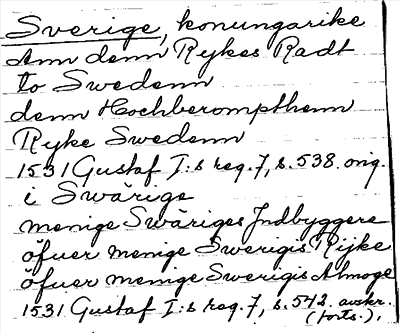 Sverige, konungarike
Ann denn Rykes Radt
to Swedenn
denn Hochberompthenn
Ryke Swedenn
1531 Gustaf I:s reg. 7, s. 538. orig.
i Swärige
menige Swäriges Indbyggere
öfuer menige Swerigis Rijke
öfuer menige Swerigis Almoge
1531 Gustaf I:s reg. 7, s. 542. avskr.
(forts.).